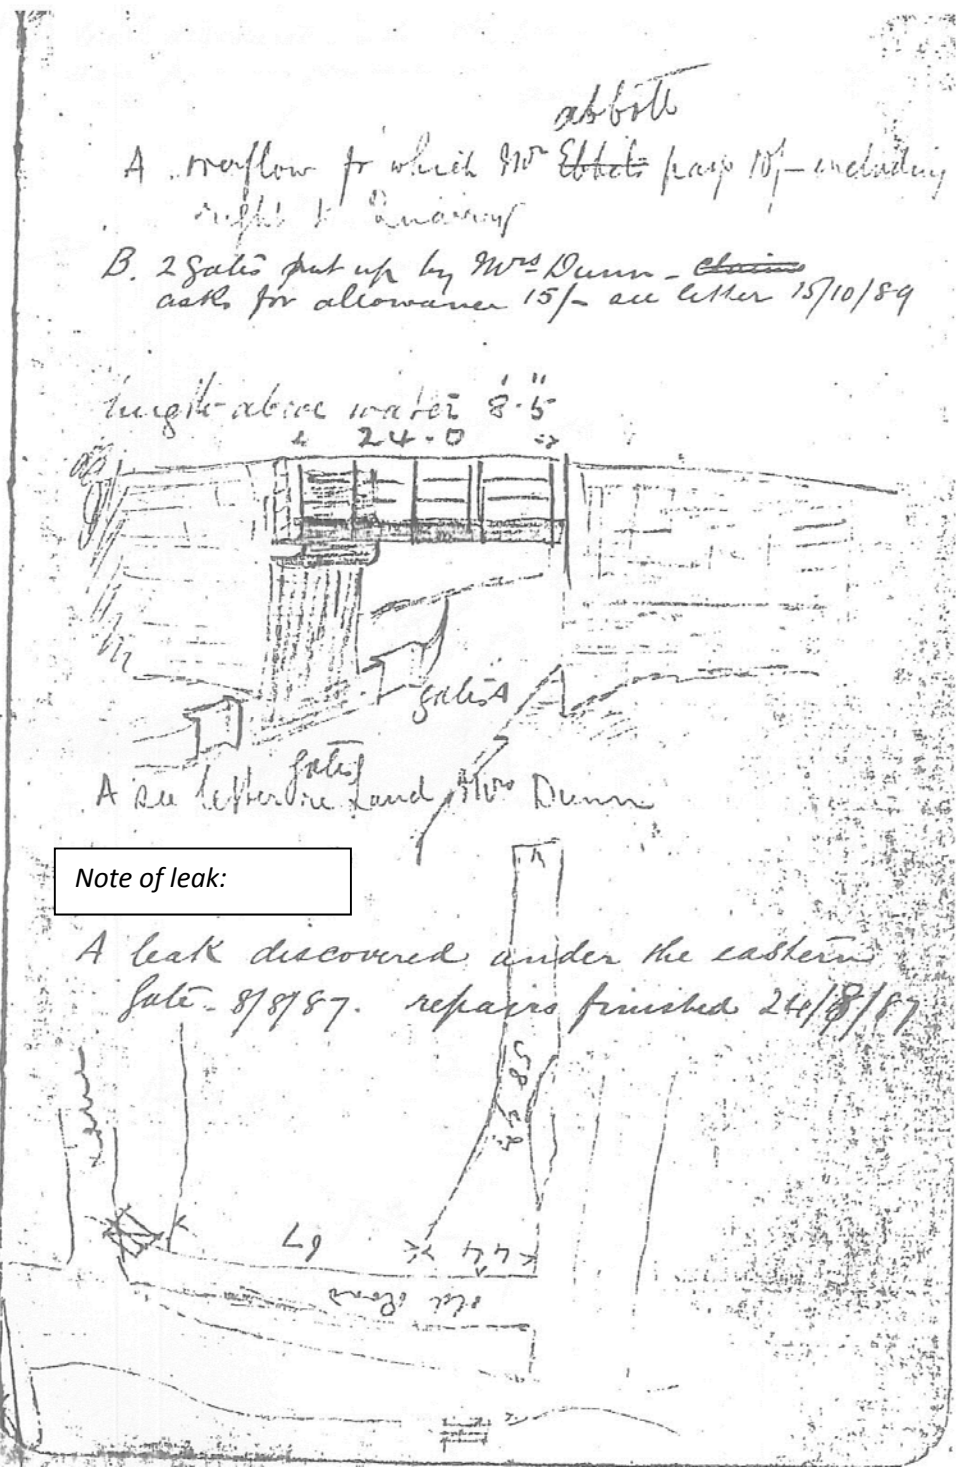 abbott
A . overflow fr which Mr Ebbets pays 10/- including
right to
B. 2 gates put up by Mrs Dunn - claims
asks for allowance 15/- see letter 15/10/89
height above water 8'.5"
24.0
gates A
gates
A see letter re Land Mrs Dunn
Note of leak:
A leak discovered under the eastern
gate - 8/8/87. repairs finished 24/8/87
58
67
44
old